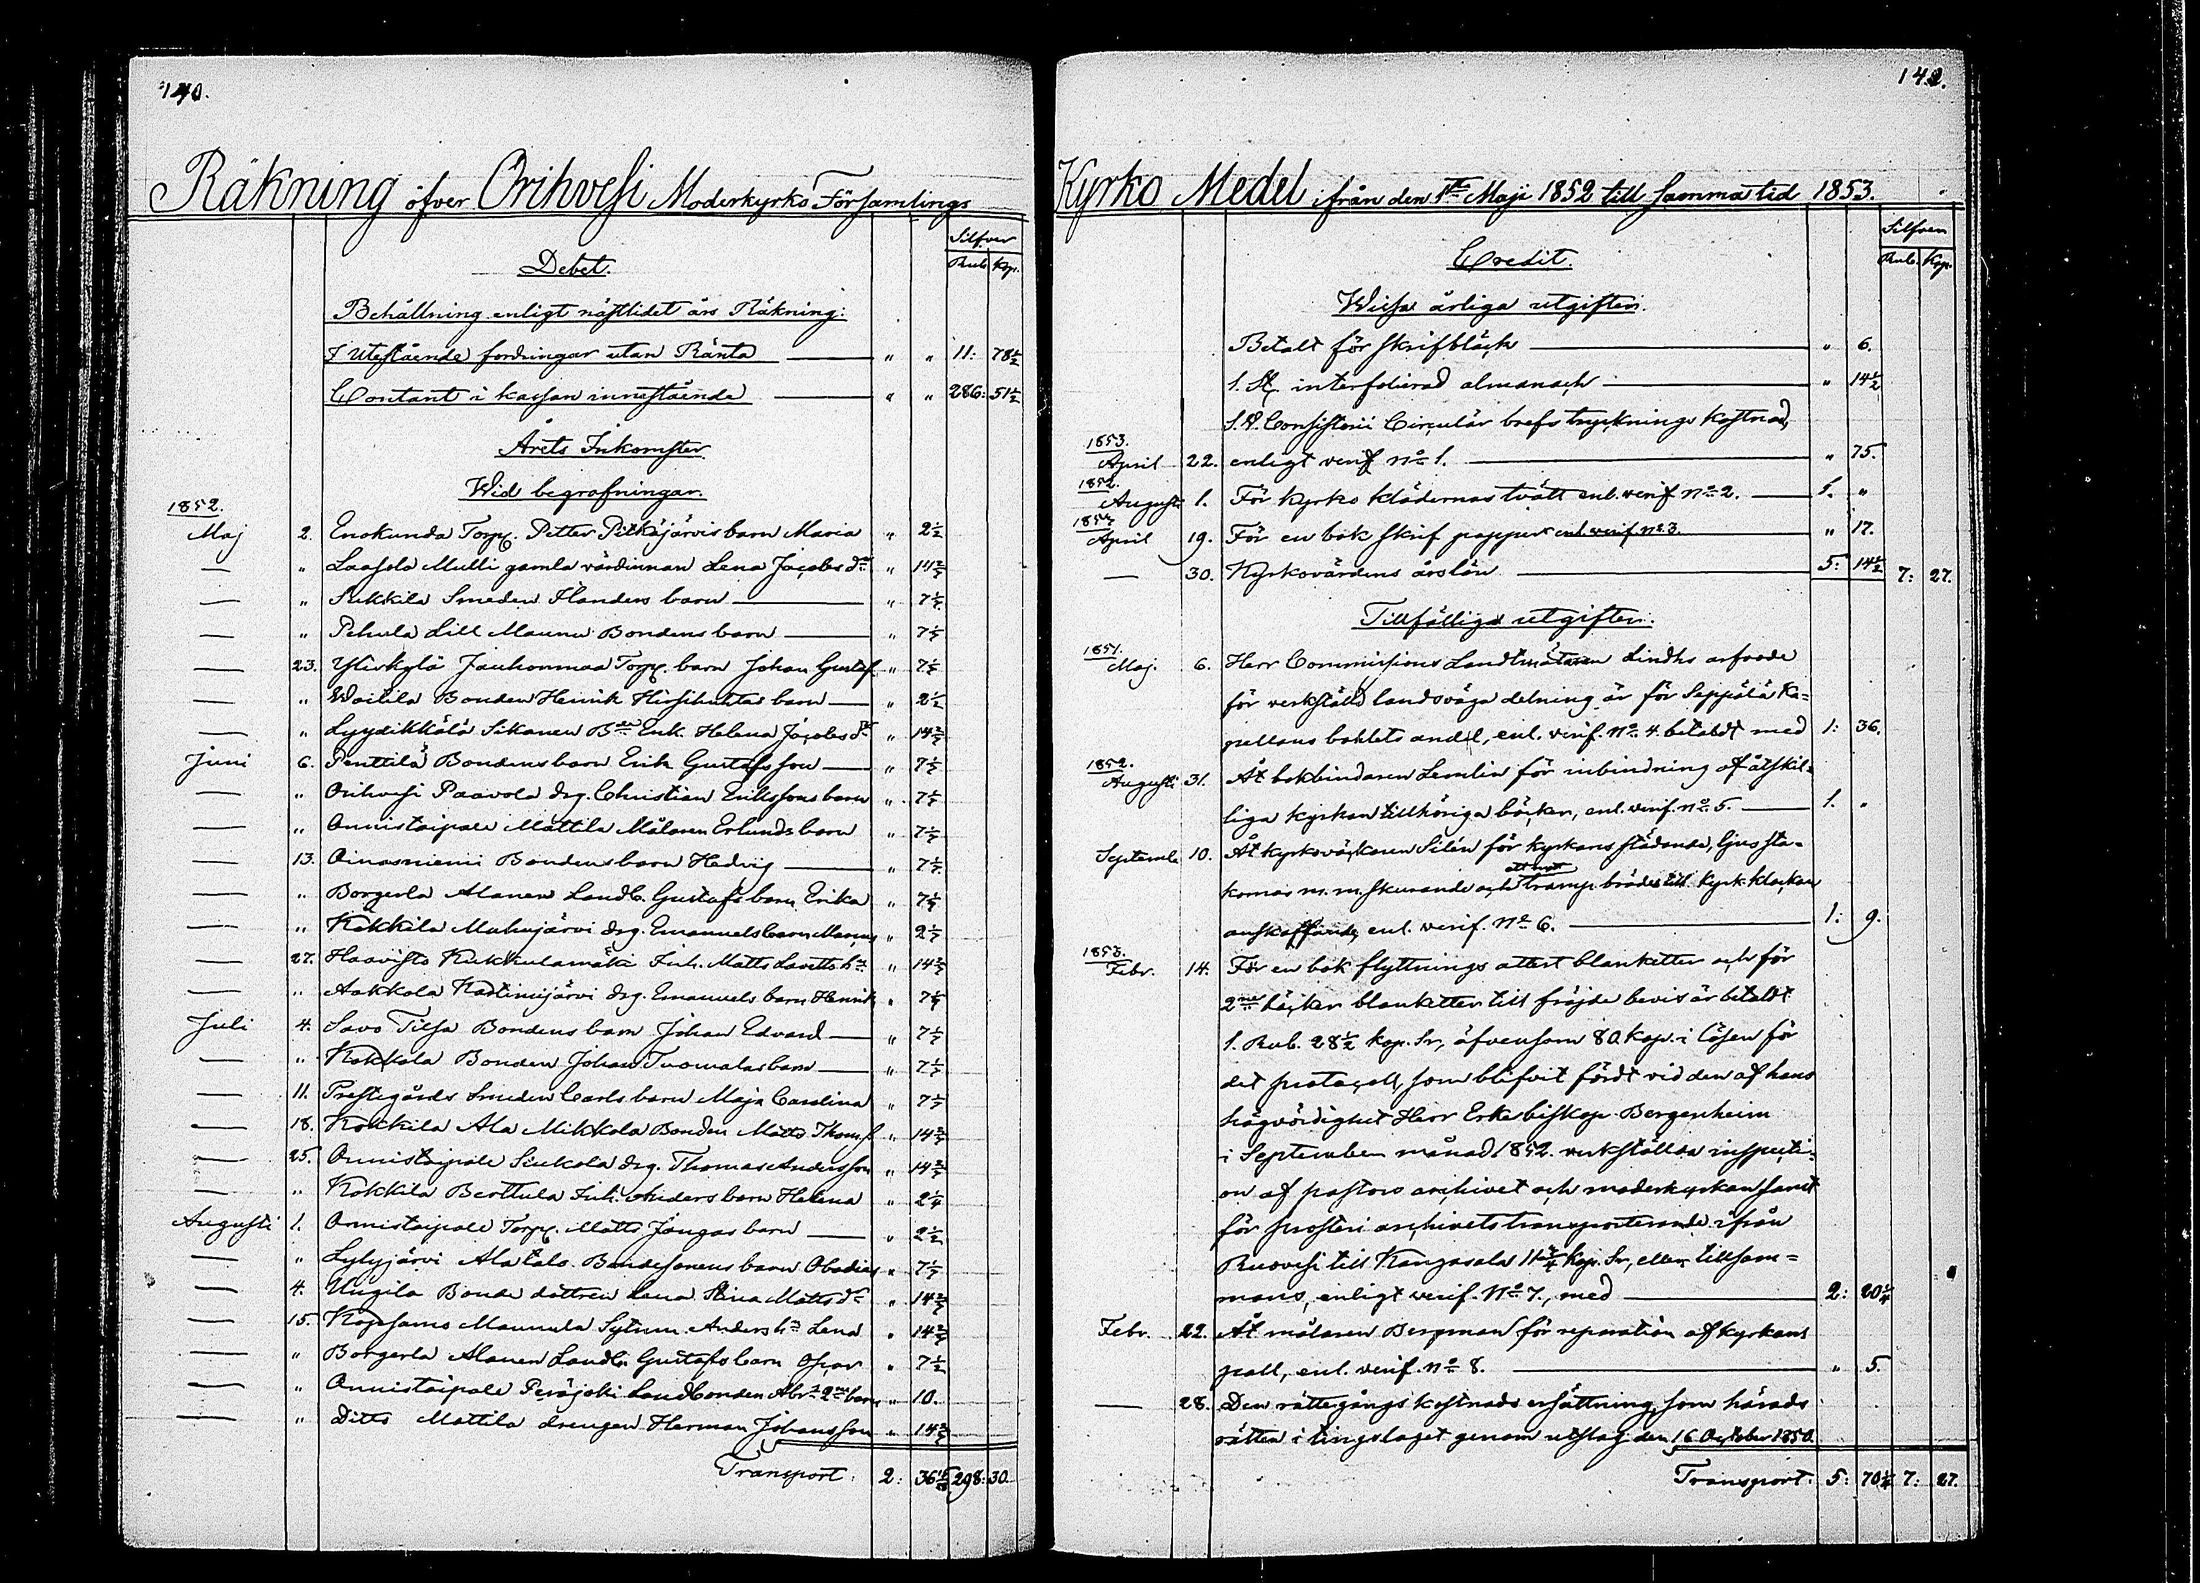 140.
Räkning öfver Orihvesi Moderkyrko Församlings
Silfver
Rub. Kop.
Debet.
Behållning enligt nästlidet års Räkning:
I Utestående fordringar utan Ränta — " " 11: 78 1/2
Contant i kassan innestående — " " 286: 51 1/2
Årets Inkomster
Wid begrafningar.
1852.
Maj 2. Enokunda Torp. Petter Pitkäjärvis barn Maria " 2 1/2
— " Laasola Mulli gamla värdinnan Lena Jacobsdr " 14 2/7
— " Sukkila Smeden Flanders barn — " 7 1/7
— " Pehula Lill Maunu Bondens barn — " 7 1/7
— 23. Ylikylä Jauhonmaa Torp. barn Johan Gustaf " 7 1/7
— " Woitila Bonden Henrik Hirsihuhtas barn — " 2 1/2
— " Lyydikkälä Sikanen Enk. Helena Jacobsdr " 14 2/7
Juni 6. Penttilä Bondens barn Erik Gustafsson — " 7 1/7
— " Orihvesi Paavola drg. Christian Erikssons barn " 7 1/7
— " Onnistaipale Mattila Målaren Erlunds barn " 7 1/7
— 13. Oinasniemi Bondens barn Hedvig — " 7 1/7
— " Borgerla Alanen Landb. Gustafs barn Erika " 7 1/7
— " Kokkila Muhujärvi drg. Emanuels barn " 2 1/7
— 27. Haavisto Kukkulamäki Inh. Matts " 14 2/7
— " Aakkola drg. Emanuels barn Henrik " 7 1/7
Juli 4. Savo Tilsa Bondens barn Johan Edvard — " 7 1/7
— " Kokkola Bonden Johan Tuomalas barn — " 7 1/7
— 11. Prestegårds Smeden Carls barn Maja Carolina " 7 1/7
— 18. Kokkila Ala Mikkola Bonden Matts Thoms " 14 2/7
— 25. Onnistaipale Siukola drg. Thomas Andersson " 14 2/7
— " Kokkila Berttula Inh. Anders barn Helena " 2 1/4
Augusti 1. Onnistaipale Torp. Matts Jangas barn — " 2 1/2
— " Lylyjärvi Alatalo Bondesonens barn Obadias " 7 1/7
— 4. Ungila Bonde dottren Lena Stina Mattsdr " 14 2/7
— 15. Kopsamo Maunula Sytnin. Anders Lena " 14 2/7
— " Borgerla Alanen Landb. Gustafs barn Oscar " 7 1/2
— " Onnistaipale Peräjoki Landbonden Abr. 2ne barn " 10.
— " Ditto Mattila drengen Herman Johansson " 14 2/7
Transport. 2: 36 298: 30.
142.
Kyrko Medel ifrån den 1sta Maji 1852 till samma tid 1853.
Silfver
Rub. Kop.
Credit.
Wissa årliga utgifter.
Betalt för skrifbläck — " 6.
1. St. interfolierad almanach — " 14 1/2
S. V. Consistorii Circulär brefs trycknings kostnad,
1853.
April 22. enligt verif. No 1. — " 75.
1852.
Augusti 1. För kyrko klädernas tvätt enl. verif. No 2. — 1. "
1853
April 19. För en bok skrif papper enl. verif. No 3. " 17.
— 30. Kyrkovärdens årslön — 5: 14 1/2 7: 27.
Tillfälliga utgifter.
1851.
Maj. 6. Herr Commissions Landtmätaren Lindhs arfvode
för verkställd landsväga delning är för Seppälä Ka-
pellans bohlets andel, enl. verif. No 4 betaldt med 1: 36.
1852.
Augusti 31. Åt bokbindaren Lemlin för inbindning af åtskil-
liga kyrkan tillhöriga böcker, enl. verif. No 5. — 1. "
Septemb. 10. Åt kyrkoväckaren Silén för kyrkans städande, ljussta-
kornas m. m. skurande och tramp bräde till kyrk. klockan
anskaffande, enl. verif. No 6. — 1: 9.
1853.
Febr. 14. För en bok flyttnings attest blanketter och för
2ne böcker blanketter till frejde bevis är betaldt
1. Rub. 28 1/2 kop. Sr, äfvensom 80 kop. i lösen för
det protocoll, som blifvit fördt vid den af hans
högvördighet Herr Erke biskop Bergenheim
i September månad 1852. verkställda inspecti-
on af pastors archivet och moderkyrkan samt
för prosteri archivets transporterande ifrån
Ruovesi till Kangasala 11 3/4 kop. Sr, eller tillsam-
mans, enligt verif. No 7., med — 2: 20 1/4
Febr. 22. Åt målaren Bergman för reparation af kyrkans
pall, enl. verif. No 8. — " 5.
— 28. Den rättegångs kostnads ersättning, som härads
rätten i tingslaget genom utslag den 16 October 1850
Transport. 5: 70 1/4 7: 27.